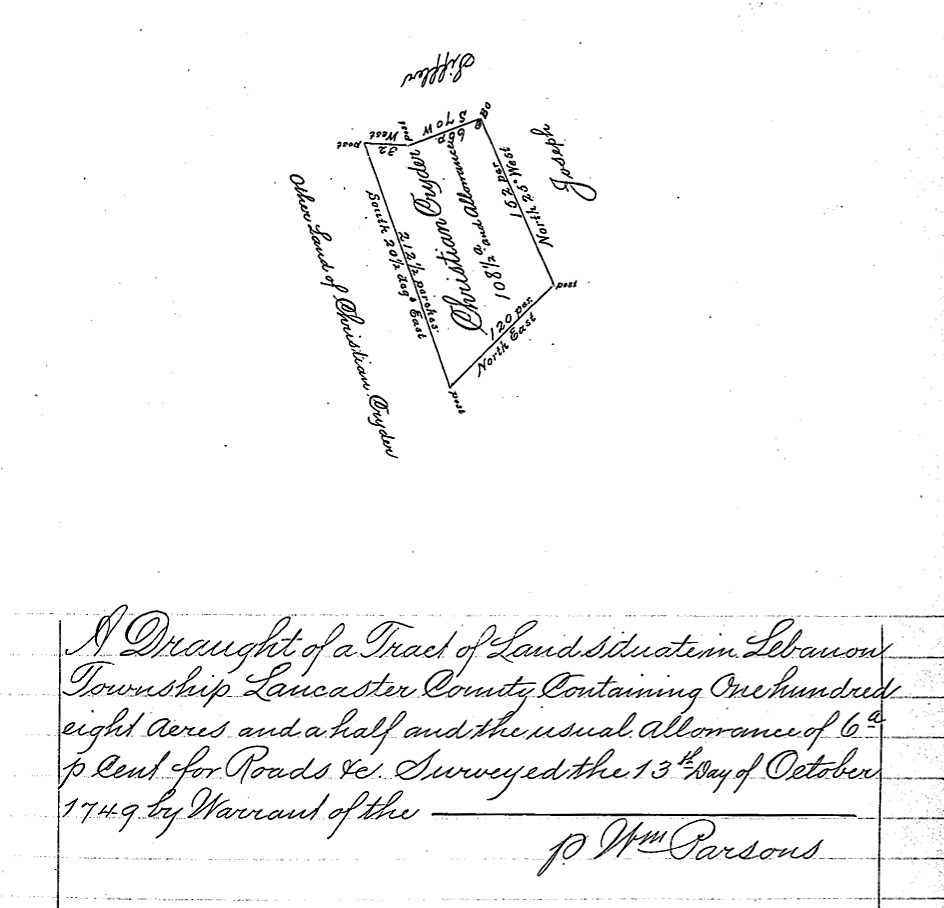 Siffler
Joseph
Bo
S 70 W
66 p.
post
West
32
post
152 per
North 25° West
post
120 per.
North East
post
South 20½ deg° East
212½ perches.
Christian Cryder
108½ a. and Allowance
Other Land of Christian Cryder
A Draught of a Tract of Land situate in Lebanon
Township Lancaster County Containing One hundred
eight Acres and a half and the usual Allowance of 6 a
p Cent for Roads &c. Surveyed the 13th Day of October
1749 by Warrant of the
p Wm Parsons